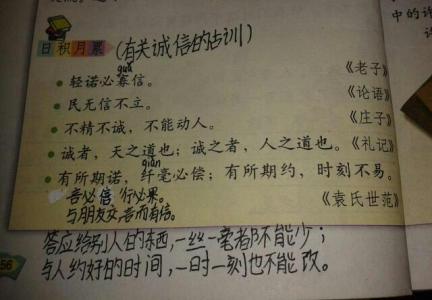 日积月累 (有关诚信的古训)
guǎ
轻诺必寡信。 《老子》
民无信不立。 《论语》
不精不诚，不能动人。 《庄子》
诚者，天之道也；诚之者，人之道也。《礼记》
qiān
有所期诺，纤毫必偿；有所期约，时刻不易。
言必信 行必果。 《袁氏世范》
与朋友交 言而有信。
答应给别人的东西，一丝一毫都不能少；
与人约好的时间，一时一刻也不能改。
56
中的许